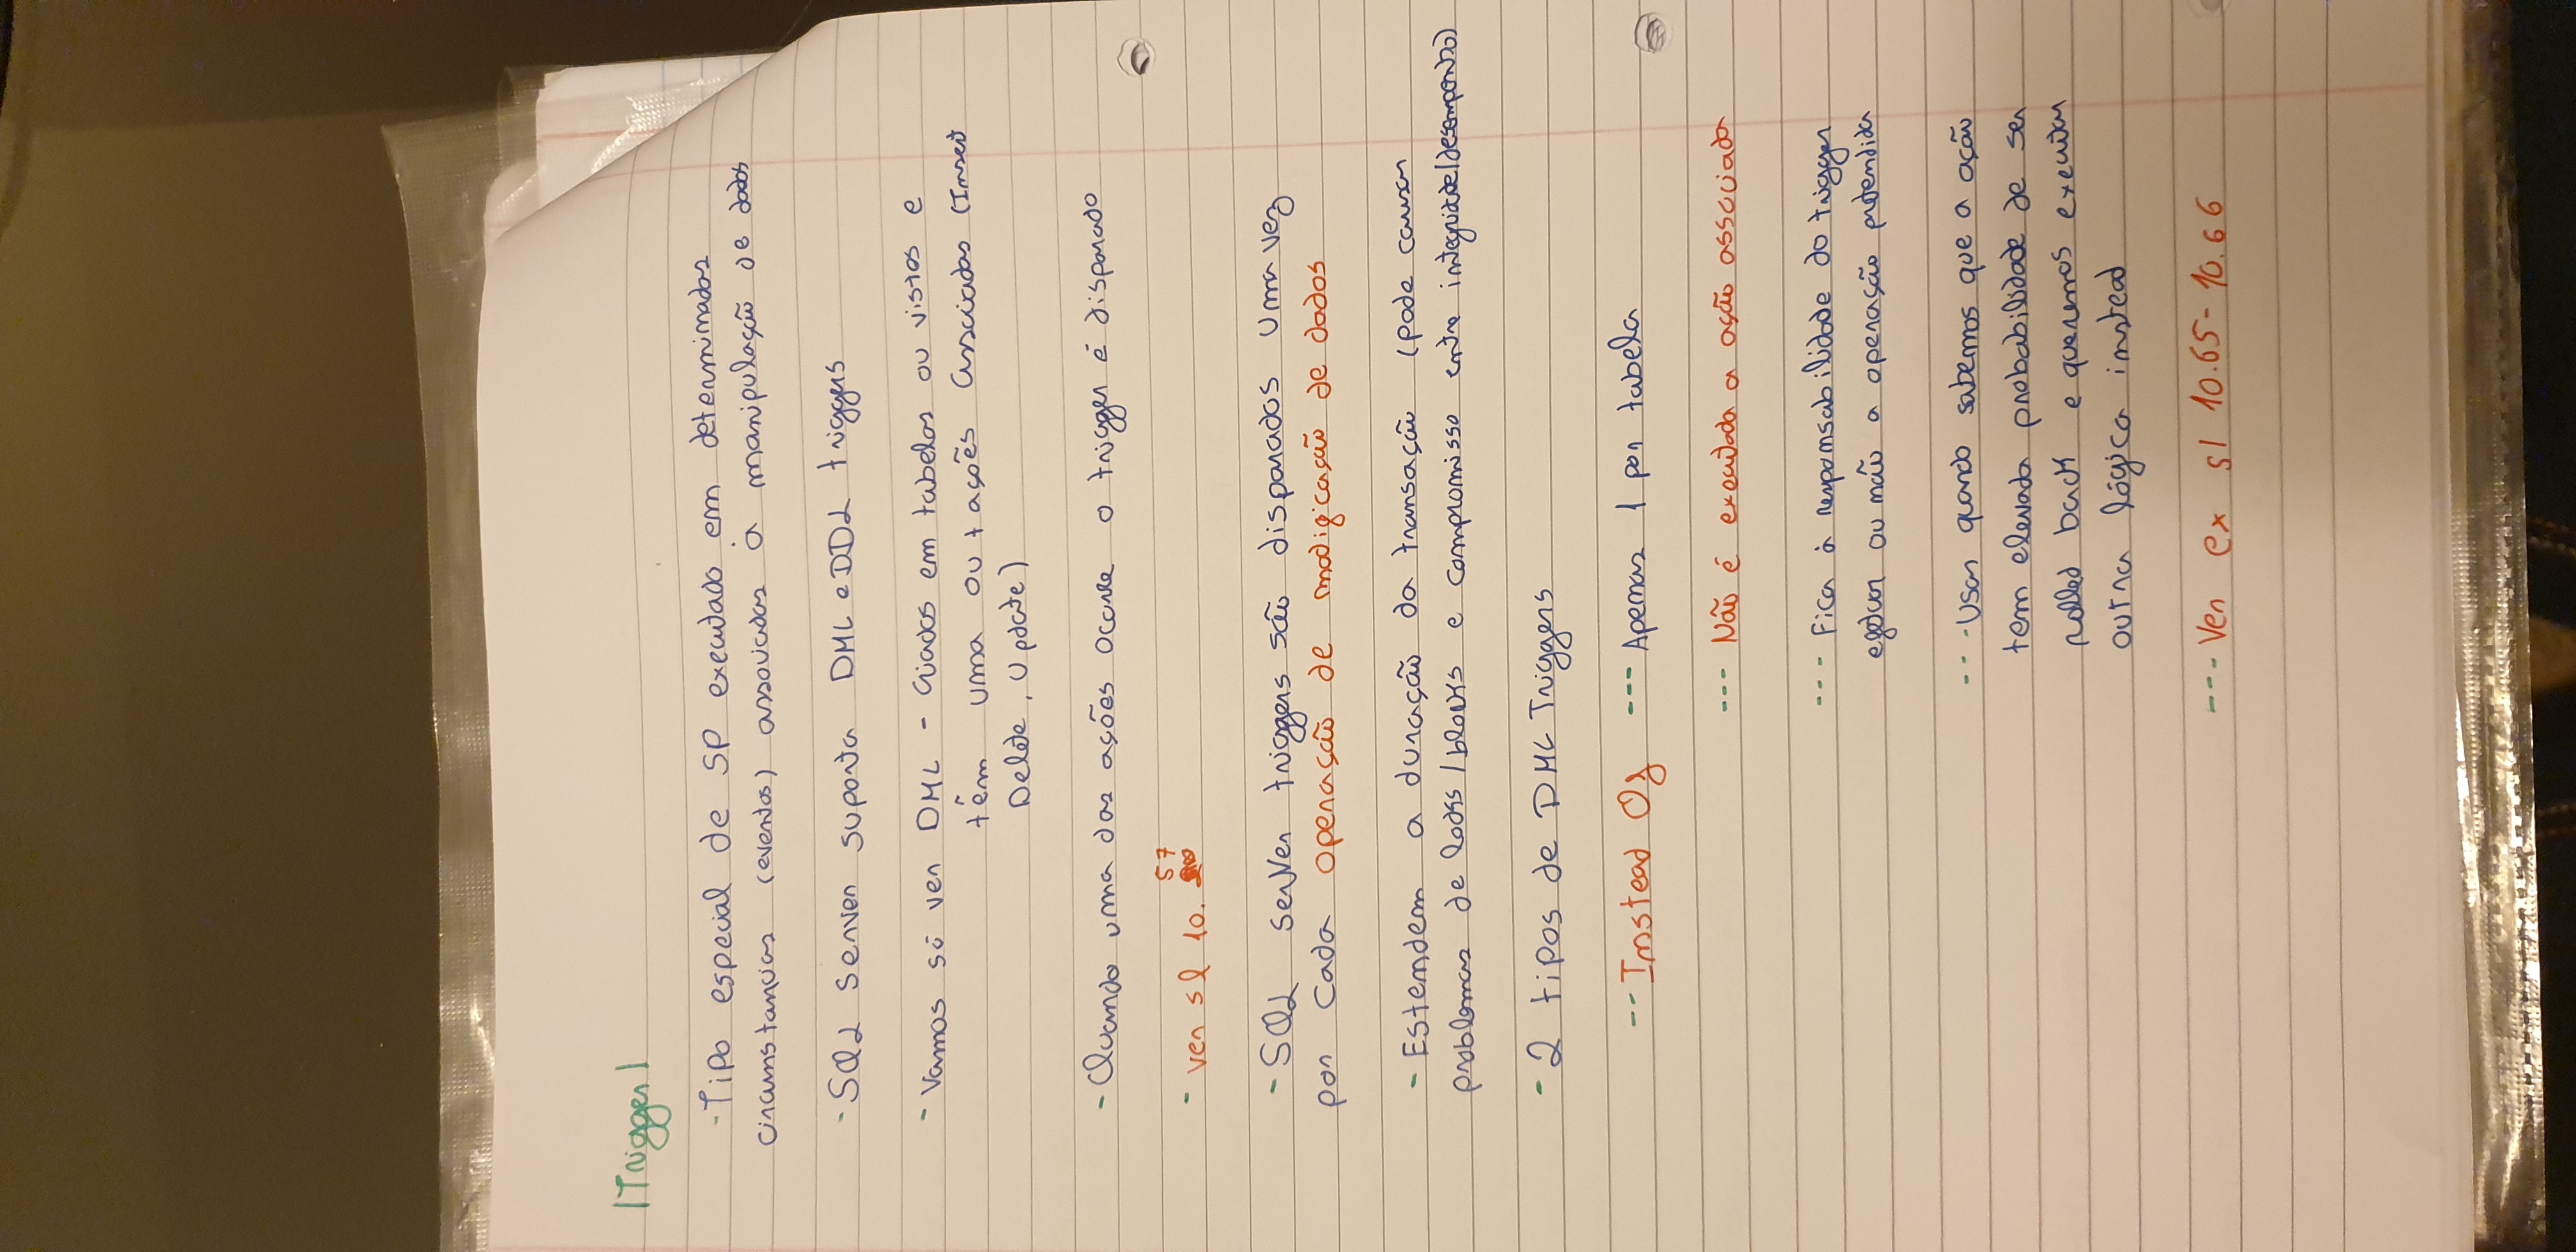 |Trigger|
- Tipo especial de SP executado em determinadas
circunstancias (eventos) associadas à manipulação de dados
- SQL Server suporta DML e DDL triggers
- Vamos só ver DML - Criados em tabelas ou vistas e
têm uma ou + ações associadas (Insert
Delete, Update)
- Quando uma das ações ocorre o trigger é disparado
- ver sl 10. 57
- SQL Server triggers são disparados uma vez
por cada operação de modificação de dados
- Estendem a duração da transação (pode causar
problemas de locks / blocks e compromisso entre integridade/desempenho)
- 2 tipos de DML Triggers
-- Instead Of --- Apenas 1 por tabela
--- Não é executada a ação associada
--- Fica à responsabilidade do trigger
efetuar ou não a operação pretendida
--- Usar quando sabemos que a ação
tem elevada probabilidade de ser
rolled back e queremos executar
outra lógica instead
--- Ver ex sl 10.65 - 10.66